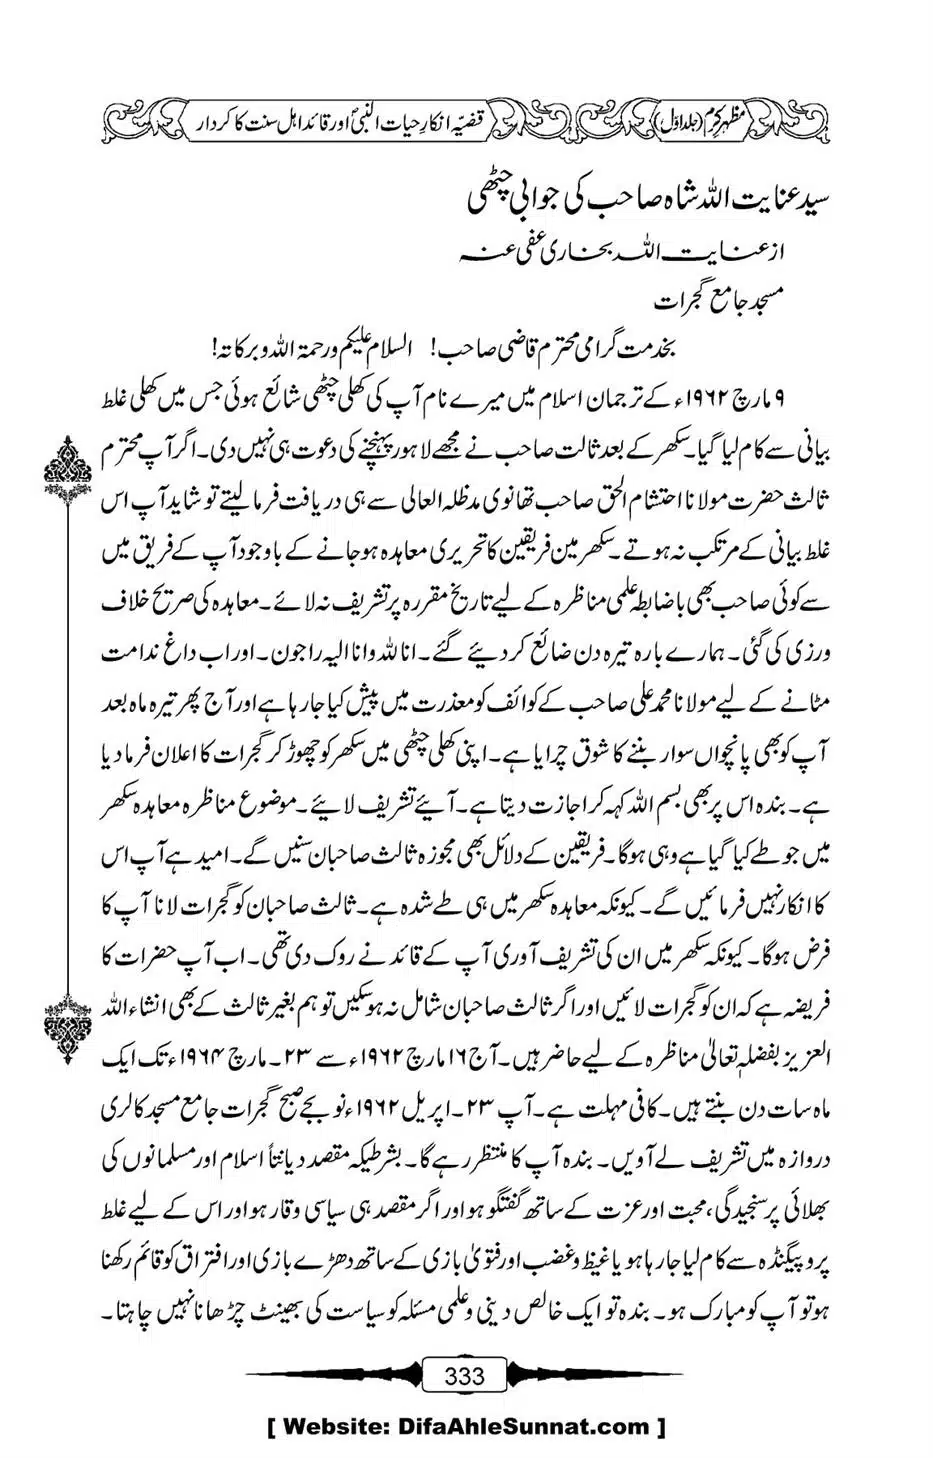 مظہر کرم (جلد اوّل) قضیّہ انکارِ حیات النبیؐ اور قائد اہل سنت کا کردار
سید عنایت اللہ شاہ صاحب کی جوابی چٹھی
از عنایت اللہ بخاری عفی عنہ
مسجد جامع گجرات
بخدمت گرامی محترم قاضی صاحب! السلام علیکم ورحمۃ اللہ وبرکاتہ!
۹ مارچ ۱۹۶۲ء کے ترجمان اسلام میں میرے نام آپ کی کھلی چٹھی شائع ہوئی جس میں کھلی غلط
بیانی سے کام لیا گیا۔ سکھر کے بعد ثالث صاحب نے مجھے لاہور پہنچنے کی دعوت ہی نہیں دی۔ اگر آپ محترم
ثالث حضرت مولانا احتشام الحق صاحب تھانوی مدظلہ العالی سے ہی دریافت فرما لیتے تو شاید آپ اس
غلط بیانی کے مرتکب نہ ہوتے۔ سکھر مین فریقین کا تحریری معاہدہ ہو جانے کے باوجود آپ کے فریق میں
سے کوئی صاحب بھی باضابطہ علمی مناظرہ کے لیے تاریخ مقررہ پر تشریف نہ لائے۔ معاہدہ کی صریح خلاف
ورزی کی گئی۔ ہمارے بارہ تیرہ دن ضائع کر دیئے گئے۔ انا للہ وانا الیہ راجون۔ اور اب داغ ندامت
مٹانے کے لیے مولانا محمد علی صاحب کے کوائف کو معذرت میں پیش کیا جا رہا ہے اور آج پھر تیرہ ماہ بعد
آپ کو بھی پانچواں سوار بننے کا شوق چرایا ہے۔ اپنی کھلی چٹھی میں سکھر کو چھوڑ کر گجرات کا اعلان فرما دیا
ہے۔ بندہ اس پر بھی بسم اللہ کہہ کر اجازت دیتا ہے۔ آیئے تشریف لایئے۔ موضوع مناظرہ معاہدہ سکھر
میں جو طے کیا گیا ہے وہی ہوگا۔ فریقین کے دلائل بھی مجوزہ ثالث صاحبان سنیں گے۔ امید ہے آپ اس
کا انکار نہیں فرمائیں گے۔ کیونکہ معاہدہ سکھر میں ہی طے شدہ ہے۔ ثالث صاحبان کو گجرات لانا آپ کا
فرض ہوگا۔ کیونکہ سکھر میں ان کی تشریف آوری آپ کے قائد نے روک دی تھی۔ اب آپ حضرات کا
فریضہ ہے کہ ان کو گجرات لائیں اور اگر ثالث صاحبان شامل نہ ہو سکیں تو ہم بغیر ثالث کے بھی انشاء اللہ
العزیز بفضلہٖ تعالیٰ مناظرہ کے لیے حاضر ہیں۔ آج ۱۶ مارچ ۱۹۶۲ء سے ۲۳۔ مارچ ۱۹۶۴ء تک ایک
ماہ سات دن بنتے ہیں۔ کافی مہلت ہے۔ آپ ۲۳۔ اپریل ۱۹۶۲ء نو بجے صبح گجرات جامع مسجد کالری
دروازہ میں تشریف لے آویں۔ بندہ آپ کا منتظر رہے گا۔ بشرطیکہ مقصد دیانتاً اسلام اور مسلمانوں کی
بھلائی پر سنجیدگی، محبت اور عزت کے ساتھ گفتگو ہو اور اگر مقصد ہی سیاسی وقار ہو اور اس کے لیے غلط
پروپیگنڈہ سے کام لیا جا رہا ہو یا غیظ وغضب اور فتویٰ بازی کے ساتھ دھڑے بازی اور افتراق کو قائم رکھنا
ہو تو آپ کو مبارک ہو۔ بندہ تو ایک خالص دینی وعلمی مسئلہ کو سیاست کی بھینٹ چڑھانا نہیں چاہتا۔
333
[ Website: DifaAhleSunnat.com ]